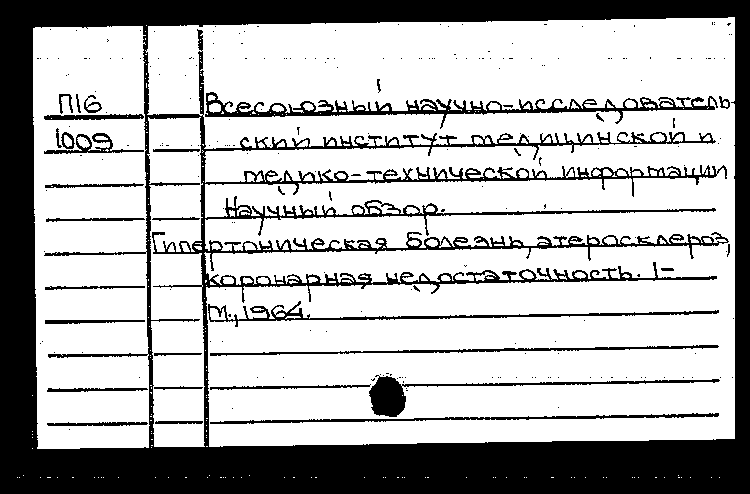 П16 Всесоюзный научно-исследователь-
1009 ский институт медицинской и
медико-технической информации.
Научный обзор.
Гипертоническая болезнь, атеросклероз,
коронарная недостаточность. 1-
М., 1964.